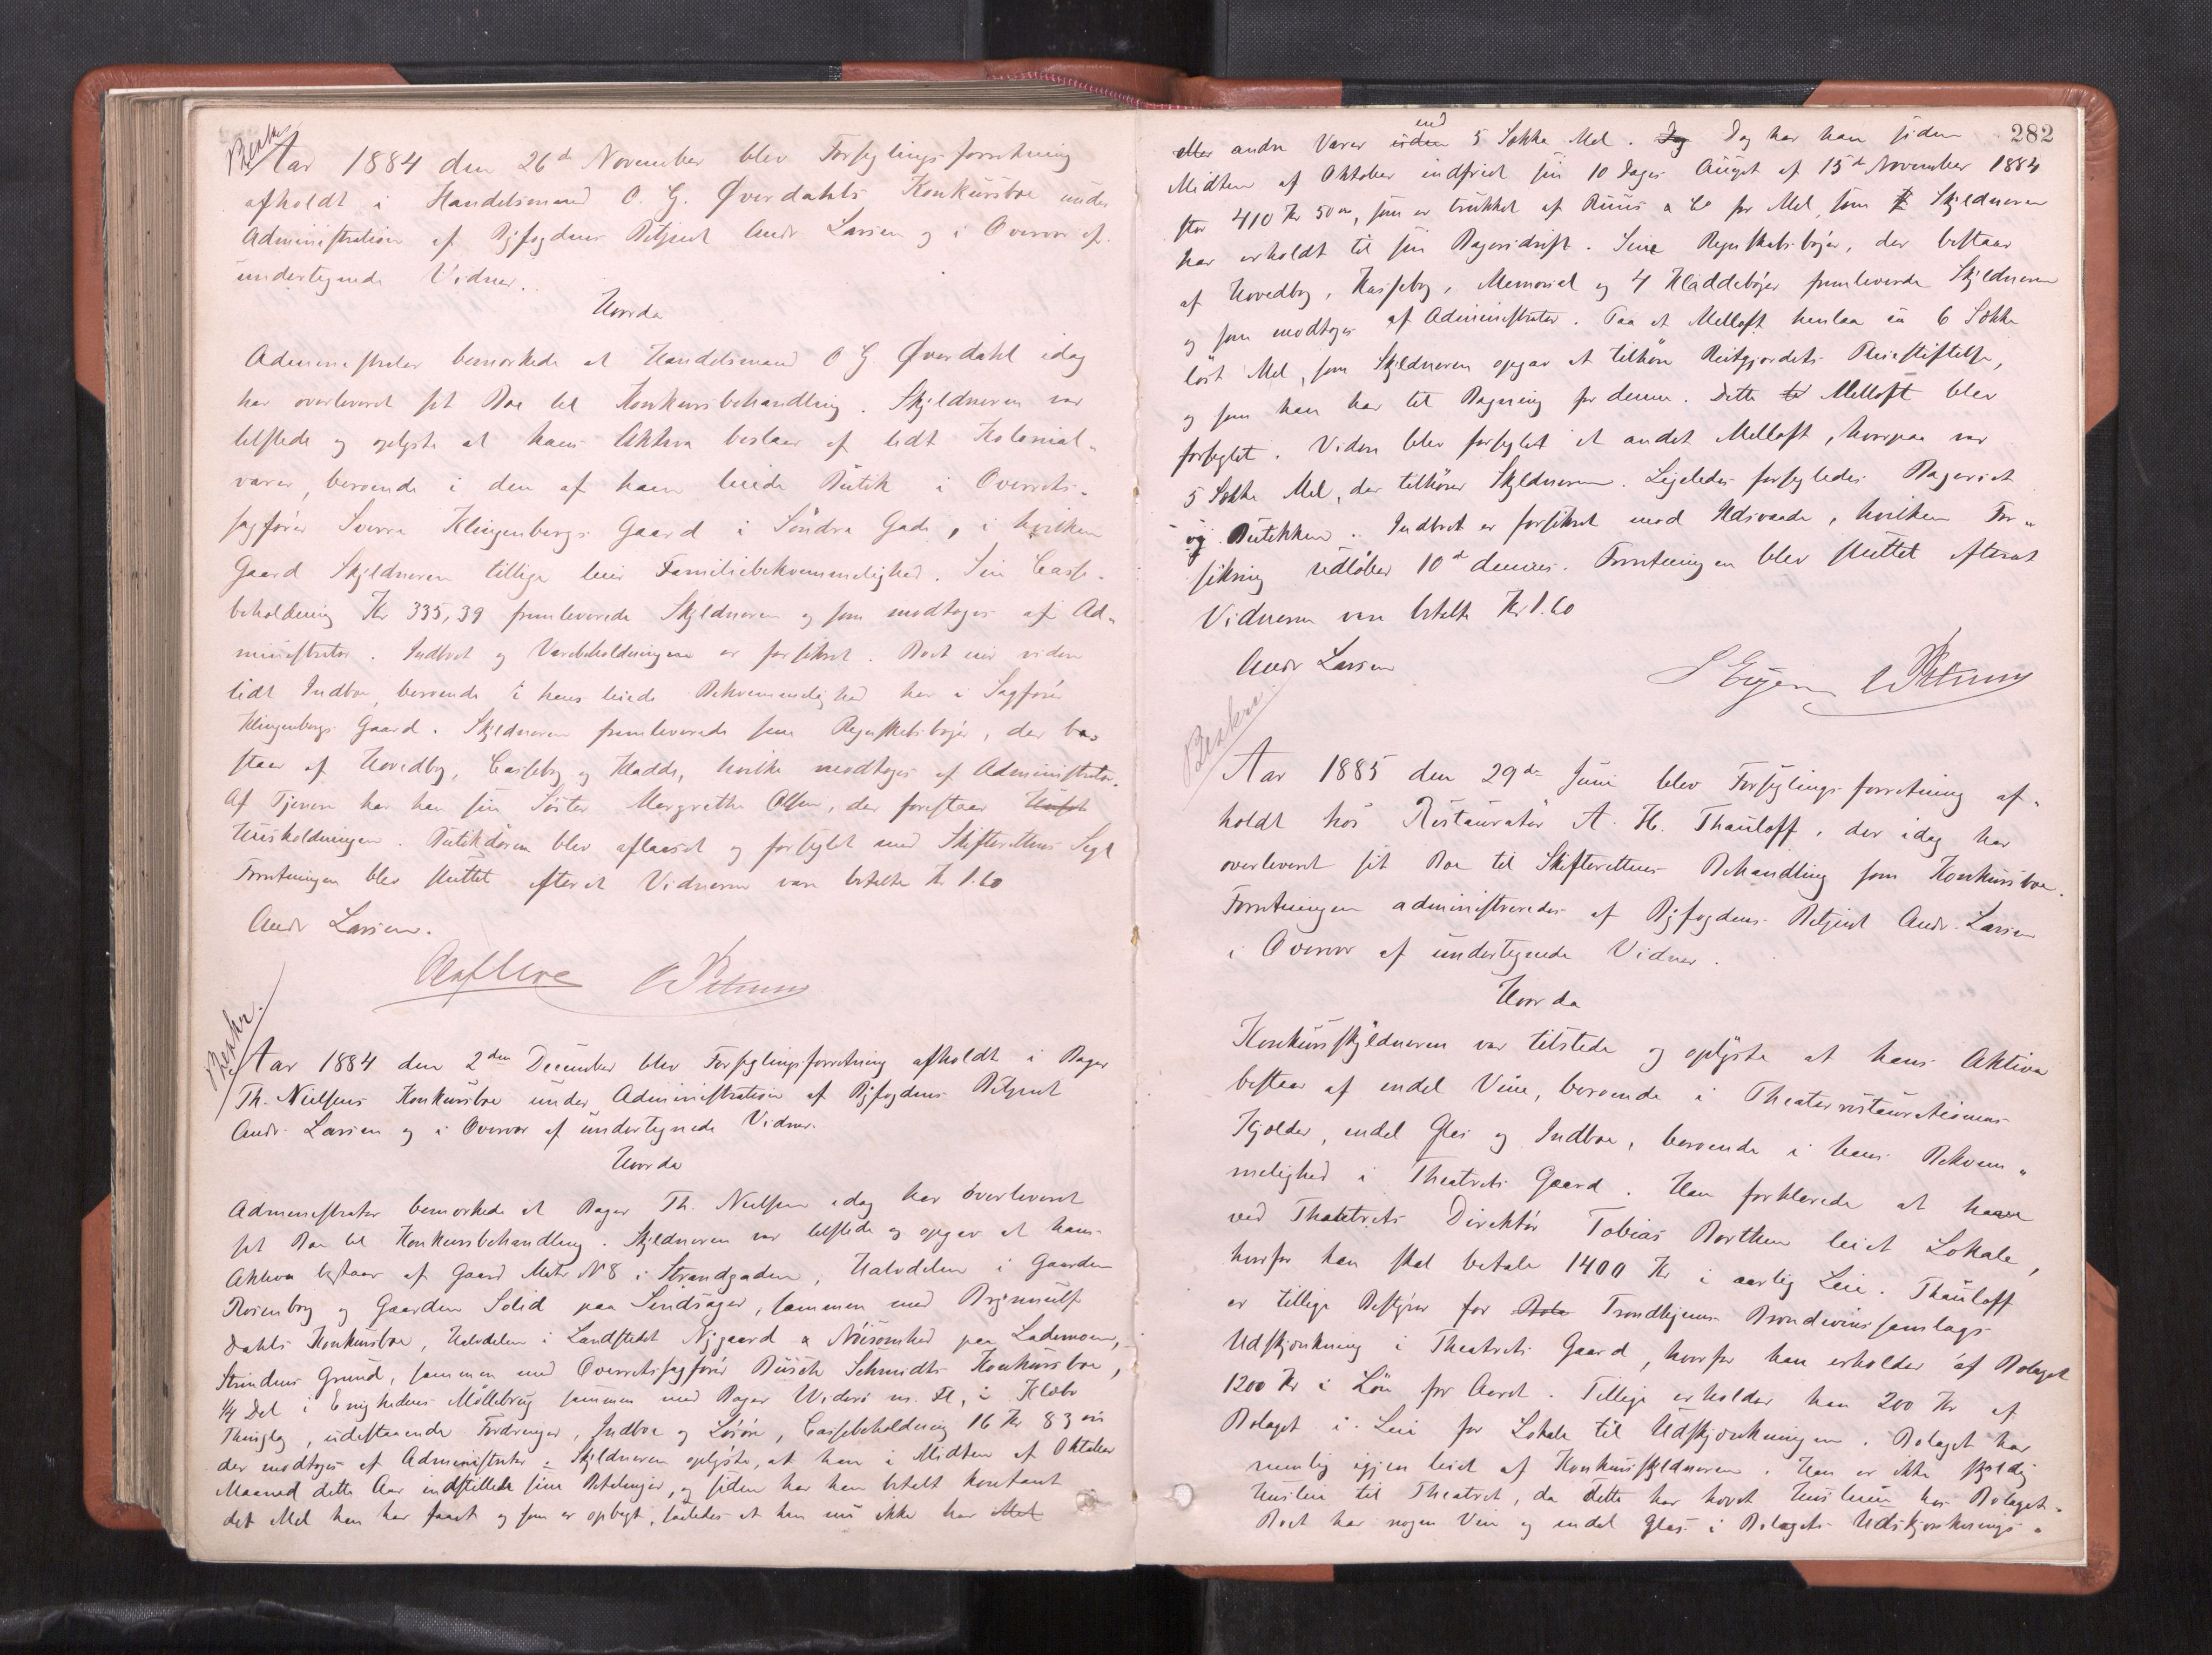 Beskr
Aar 1884 den 26d November blev Forseglingsforretning
afholdt i Handelsmand O. G. Øverdahls Konkursboe under
Administration af Byfogdens Betjent Andr Larsen og i Overvær af
undertegnede Vidner.
Hvorda
Administrator bemærkede at Handelsmand O G Øverdahl idag
har overleveret sit Boe til Konkursbehandling. Skyldneren var
tilstede og oplyste at hans Aktiva bestaar af lidt Kolonial-
varer, beroende i den af ham leiede Butik i Overrets-
sagfører Sverre Klingenbergs Gaard i Søndre Gade, i hvilken
Gaard Skyldneren tillige leier Familiebekvemmelighed. Sin Casse-
beholdning Kr 335,39 fremleverede Skyldneren og som modtoges af Ad-
ministrator. Indboet og Varebeholdningen er forsikret. Boet eier viden
lidt Indboe, beroende i hans leiede Bekvemmelighed her i Sagfører
Klingenbergs Gaard. Skyldneren fremleverede sine Regnskabsbøger, der be-
staar af Hovedbog, Cassebog og Kladde, hvilke modtoges af Administrator.
Af Tjenere har han sin Søster Margrethe Olsen, der forestaar Husho
Husholdningen. Butikdøren blev aflaaset og forseglet med Skifterettens Segl
Forretningen blev sluttet efterat Vidnerne vare betalte Kr 1.60
Andr Larsen.
OPetersen
Beskr.
Aar 1884 den 2den December blev Forseglingsforretning afholdt i Bager
Th. Nielsens Konkursboe under Administration af Byfogdens Betjent
Andr. Larsen og i Overvær af undertegnede Vidner.
Hvorda
Administrator bemærkede at Bager Th. Nielsen idag har overleveret
sit Boe til Konkursbehandling. Skyldneren var tilstede og opgav at hans
Aktiva bestaar af Gaard Matr No 8 i Strandgaden, Halvdelen i Gaarden
Rosenborg og Gaarden Solid paa Sindsager, sammen med Brynnulf
Dahls Konkursboe, Halvdelen i Landstedet Nygaard & Nøisomhed paa Lademoen,
Strindens Grund, sammen med Overretssagfører Busch Schmidts Konkursboe,
1/4 Del i Enighedens Møllebrug sammen med Bager Widerø m. Fl, i Klæbo
Thinglag, udestaaende Fordringer, Indboe og Løsøre, Cassebeholdning 16 Kr 83 øre
der modtoges af Administrator. Skyldneren oplyste, at han i Midten af Oktober
Maaned dette Aar indstillede sine Betalinger, og siden har han betalt kontant
det Mel han har faaet og som er opbagt, saaledes at han nu ikke har Mel
282
eller andre Varer uden end 5 Sække Mel. Dog Dog har han siden
Midten af Oktober indfriet sin 10 Dages Accept af 15de November 1884
stor 410 Kr 50 øre, som er trukket af Ruus & Co for Mel, som Skyldneren
har erholdt til sin Bageridrift. Sine Regnskabsbøger, der bestaar
af Hovedbog, Kassebog, Memorial og 4 Kladdebøger fremleverede Skyldneren
og som modtoges af Administrator. Paa et Melloft henlaa en 6 Sække
løst Mel, som Skyldneren opgav at tilhøre Reitgjerdets Pleiestiftelse,
og som han har til Bagning for denne. Dette Melloft blev
forseglet. Viden blev forseglet et andet Melloft, hvorpaa var
5 Sække Mel, der tilhører Skyldneren. Ligeledes forsegledes Bageriet
og Butikken. Indboet er forsikret mod Ildsvaade, hvilken For-
sikring udløber 10de dennes. Forretningen blev sluttet efterat
Vidnerne vare betalte Kr 1.60
Andr Larsen
OPetersen
Beskr.
Aar 1885 den 29de Juni blev Forseglingsforretning af-
holdt hos Restauratør A. H. Thauloff, der idag har
overleveret sit Boe til Skifterettens Behandling som Konkursboe.
Forretningen administreredes af Byfogdens Betjent Andr. Larsen
i Overvær af undertegnede Vidner.
Hvorda
Konkursskyldneren var tilstede og oplyste at hans Aktiva
bestaar af endel Vine, beroende i Theaterrestaurationens
Kjælder, endel Glas og Indboe, beroende i hans Bekvem-
melighed i Theatrets Gaard. Han forklarede at have
ved Theatrets Direktør Tobias Borthen leiet Lokale,
hvorfor han skal betale 1400 Kr i aarlig Leie. Thauloff
er tillige Bestyrer for Bola Trondhjems Brændevinssamlags
Udskjænkning i Theatrets Gaard, hvorfor han erholder af Bolaget
1200 Kr i Løn for Aaret. Tillige erholder han 200 Kr af
Bolaget i Leie for Lokale til Udskjænkningen. Bolaget har
nemlig igjen leiet af Konkursskyldneren. Han er ikke skyldig
Husleie til Theatret, da dette har hævet Husleien hos Bolaget.
Boet har nogen Vin og endel Glas i Bolagets Udskjænknings-